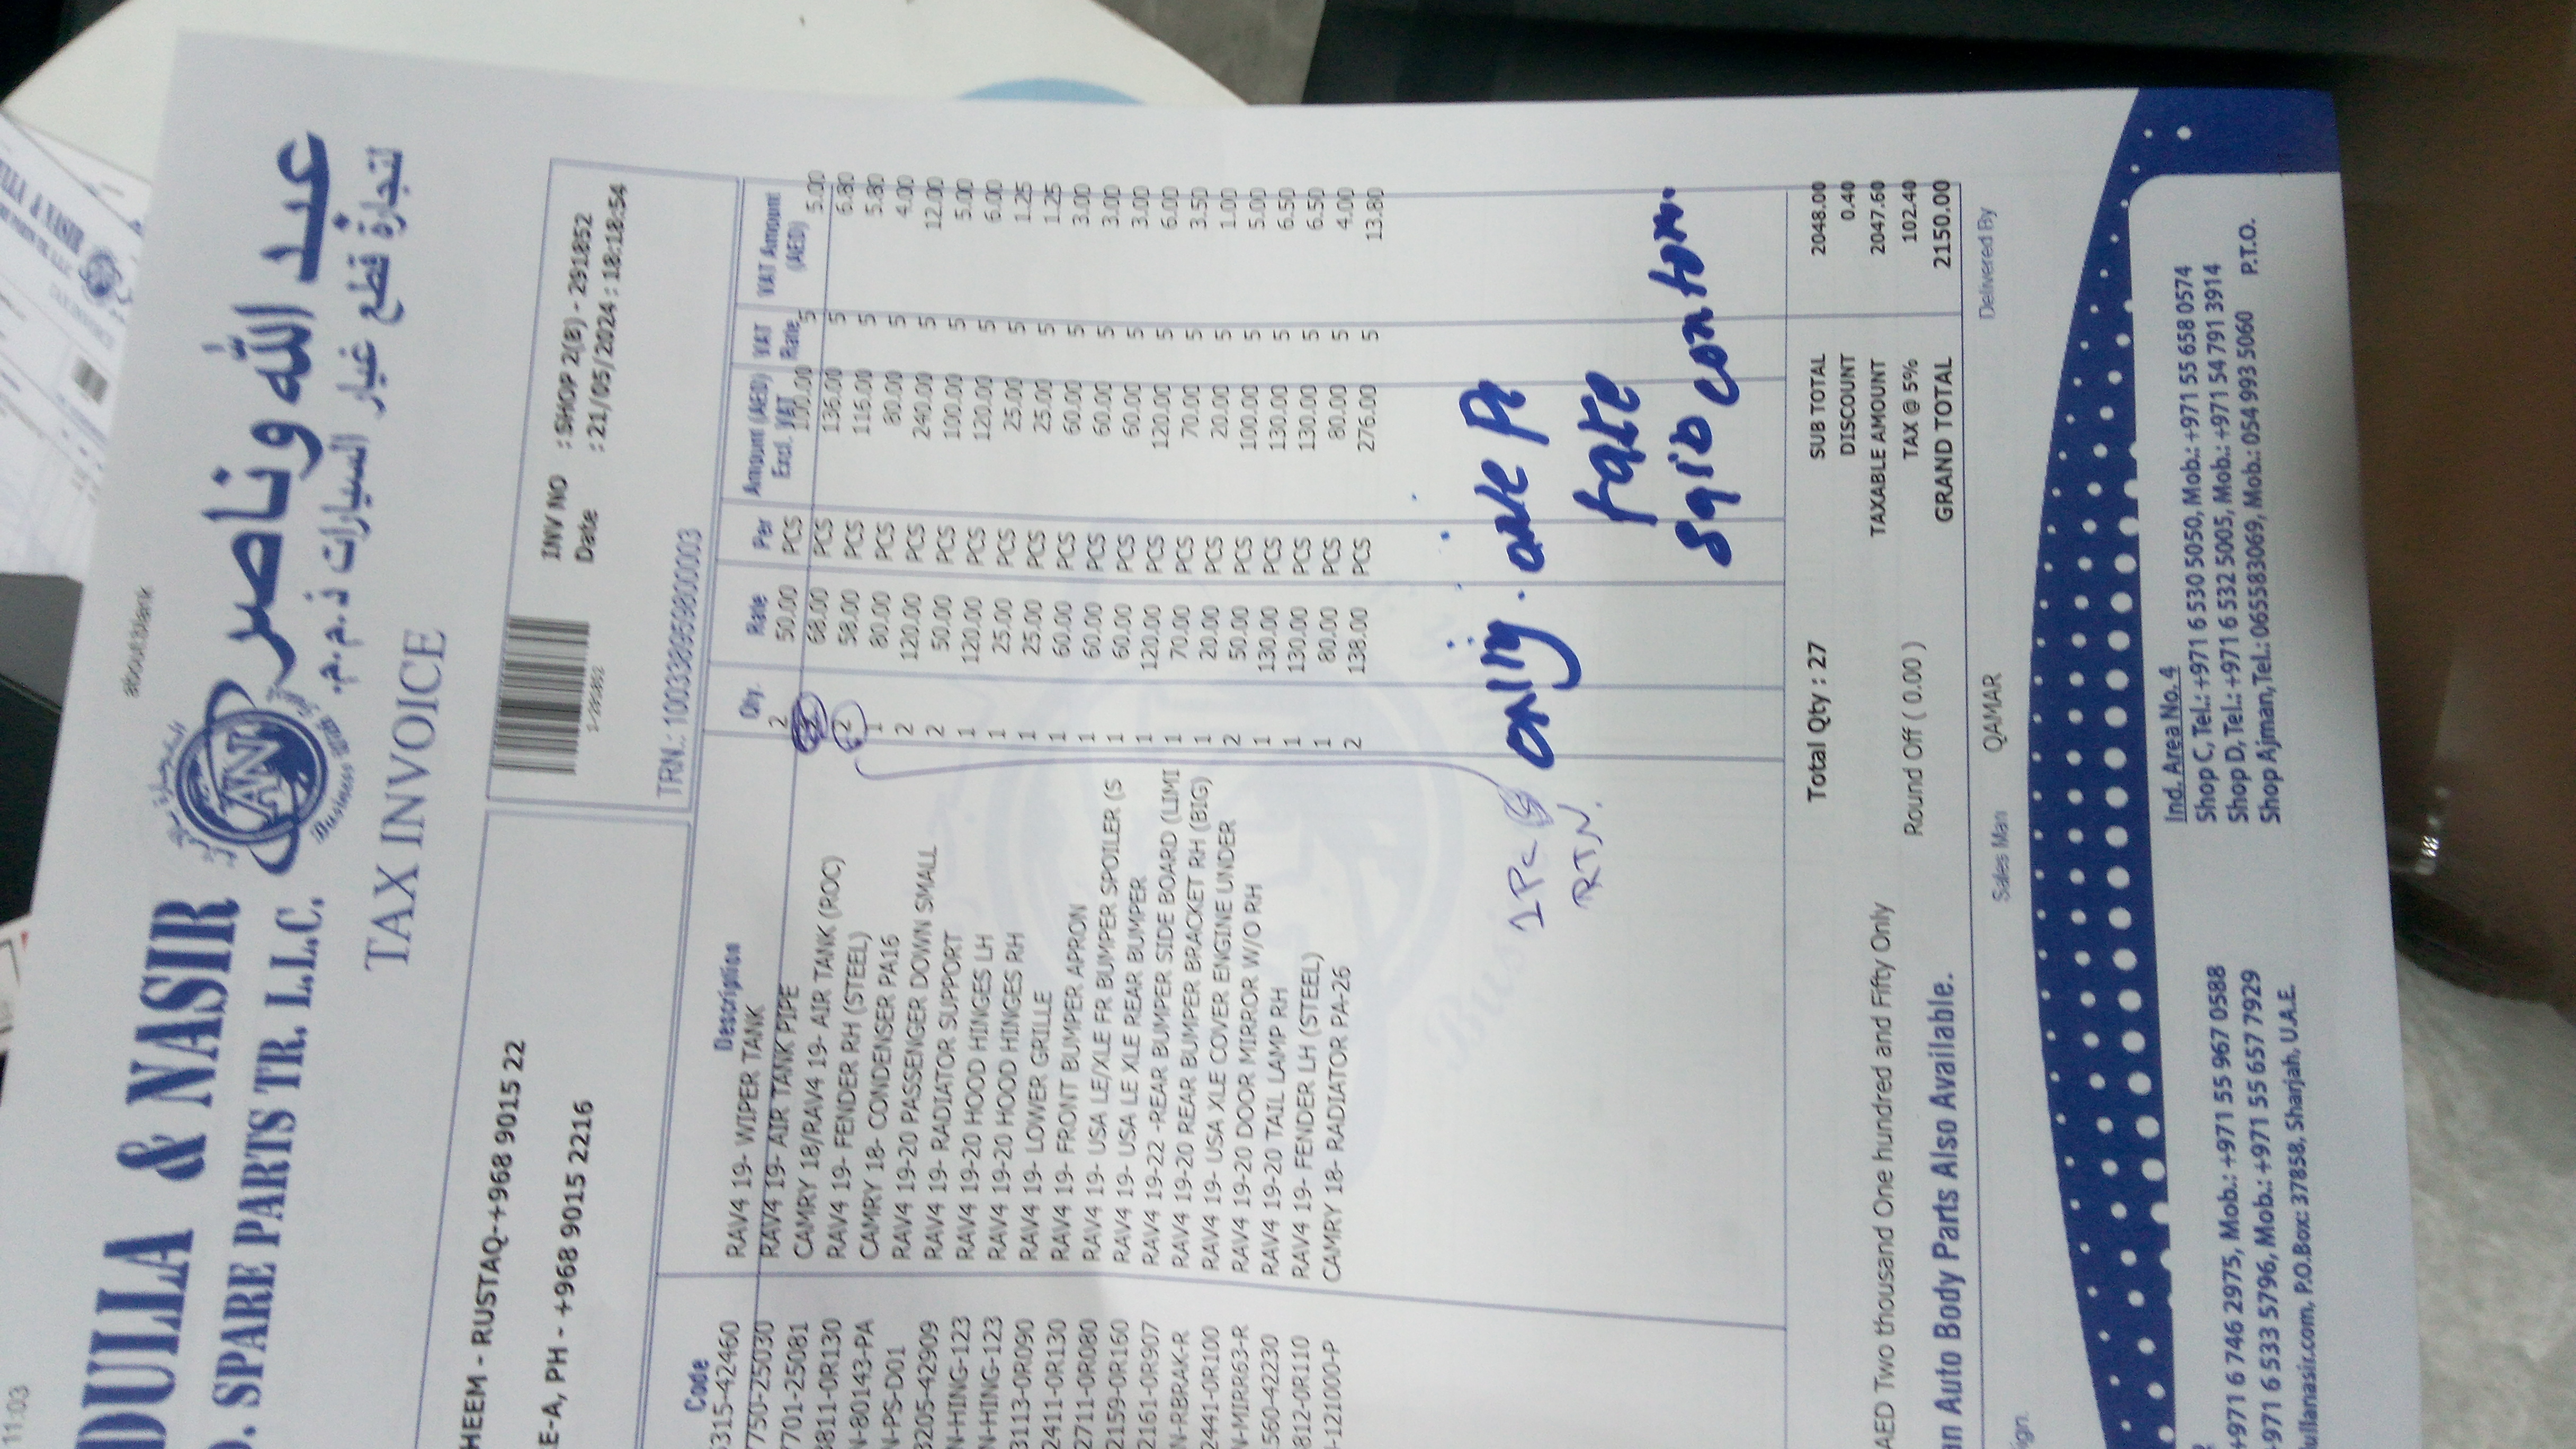 11:03
about:blank
DULLA & NASIR
عبد الله وناصر
. SPARE PARTS TR. L.L.C.
لتجارة قطع غيار السيارات ذ.م.م.
AN
TAX INVOICE
HEEM - RUSTAQ-+968 9015 22
E-A, PH - +968 9015 2216
INV NO : SHOP 2(B) - 291852
Date : 21/05/2024 : 18:18:54
TRN.: 100338959800003
Code Description Qty. Rate Per Amount (AED) Excl. VAT VAT Rate VAT Amount (AED)
315-42460 RAV4 19- WIPER TANK 2 50.00 PCS 100.00 5 5.00
750-25030 RAV4 19- AIR TANK PIPE 2 68.00 PCS 136.00 5 6.80
7701-25081 CAMRY 18/RAV4 19- AIR TANK (ROC) 2 58.00 PCS 116.00 5 5.80
3811-0R130 RAV4 19- FENDER RH (STEEL) 1 80.00 PCS 80.00 5 4.00
N-80143-PA CAMRY 18- CONDENSER PA16 2 120.00 PCS 240.00 5 12.00
N-PS-D01 RAV4 19-20 PASSENGER DOWN SMALL 2 50.00 PCS 100.00 5 5.00
3205-42909 RAV4 19- RADIATOR SUPPORT 1 120.00 PCS 120.00 5 6.00
N-HING-123 RAV4 19-20 HOOD HINGES LH 1 25.00 PCS 25.00 5 1.25
N-HING-123 RAV4 19-20 HOOD HINGES RH 1 25.00 PCS 25.00 5 1.25
3113-0R090 RAV4 19- LOWER GRILLE 1 60.00 PCS 60.00 5 3.00
2411-0R130 RAV4 19- FRONT BUMPER APRON 1 60.00 PCS 60.00 5 3.00
2711-0R080 RAV4 19- USA LE/XLE FR BUMPER SPOILER (S 1 60.00 PCS 60.00 5 3.00
2159-0R160 RAV4 19- USA LE XLE REAR BUMPER 1 120.00 PCS 120.00 5 6.00
2161-0R907 RAV4 19-22 -REAR BUMPER SIDE BOARD (LIMI 1 70.00 PCS 70.00 5 3.50
N-RBRAK-R RAV4 19-20 REAR BUMPER BRACKET RH (BIG) 1 20.00 PCS 20.00 5 1.00
2441-0R100 RAV4 19- USA XLE COVER ENGINE UNDER 2 50.00 PCS 100.00 5 5.00
N-MIRR63-R RAV4 19-20 DOOR MIRROR W/O RH 1 130.00 PCS 130.00 5 6.50
1560-42230 RAV4 19-20 TAIL LAMP RH 1 130.00 PCS 130.00 5 6.50
3812-0R110 RAV4 19- FENDER LH (STEEL) 1 80.00 PCS 80.00 5 4.00
-121000-P CAMRY 18- RADIATOR PA-26 2 138.00 PCS 276.00 5 13.80
1 Pc
RTN.
only. one Pc
take
Total Qty : 27
SUB TOTAL 2048.00
DISCOUNT 0.40
TAXABLE AMOUNT 2047.60
Round Off ( 0.00 ) TAX @ 5% 102.40
AED Two thousand One hundred and Fifty Only GRAND TOTAL 2150.00
n Auto Body Parts Also Available.
ign. Sales Man QAMAR Delivered By
+971 6 746 2975, Mob.: +971 55 967 0588
+971 6 533 5796, Mob.: +971 55 657 7929
ullanasir.com, P.O.Box: 37858, Sharjah, U.A.E.
Ind. Area No. 4
Shop C, Tel.: +971 6 530 5050, Mob.: +971 55 658 0574
Shop D, Tel.: +971 6 532 5005, Mob.: +971 54 791 3914
Shop Ajman, Tel.: 065583069, Mob.: 054 993 5060 P.T.O.